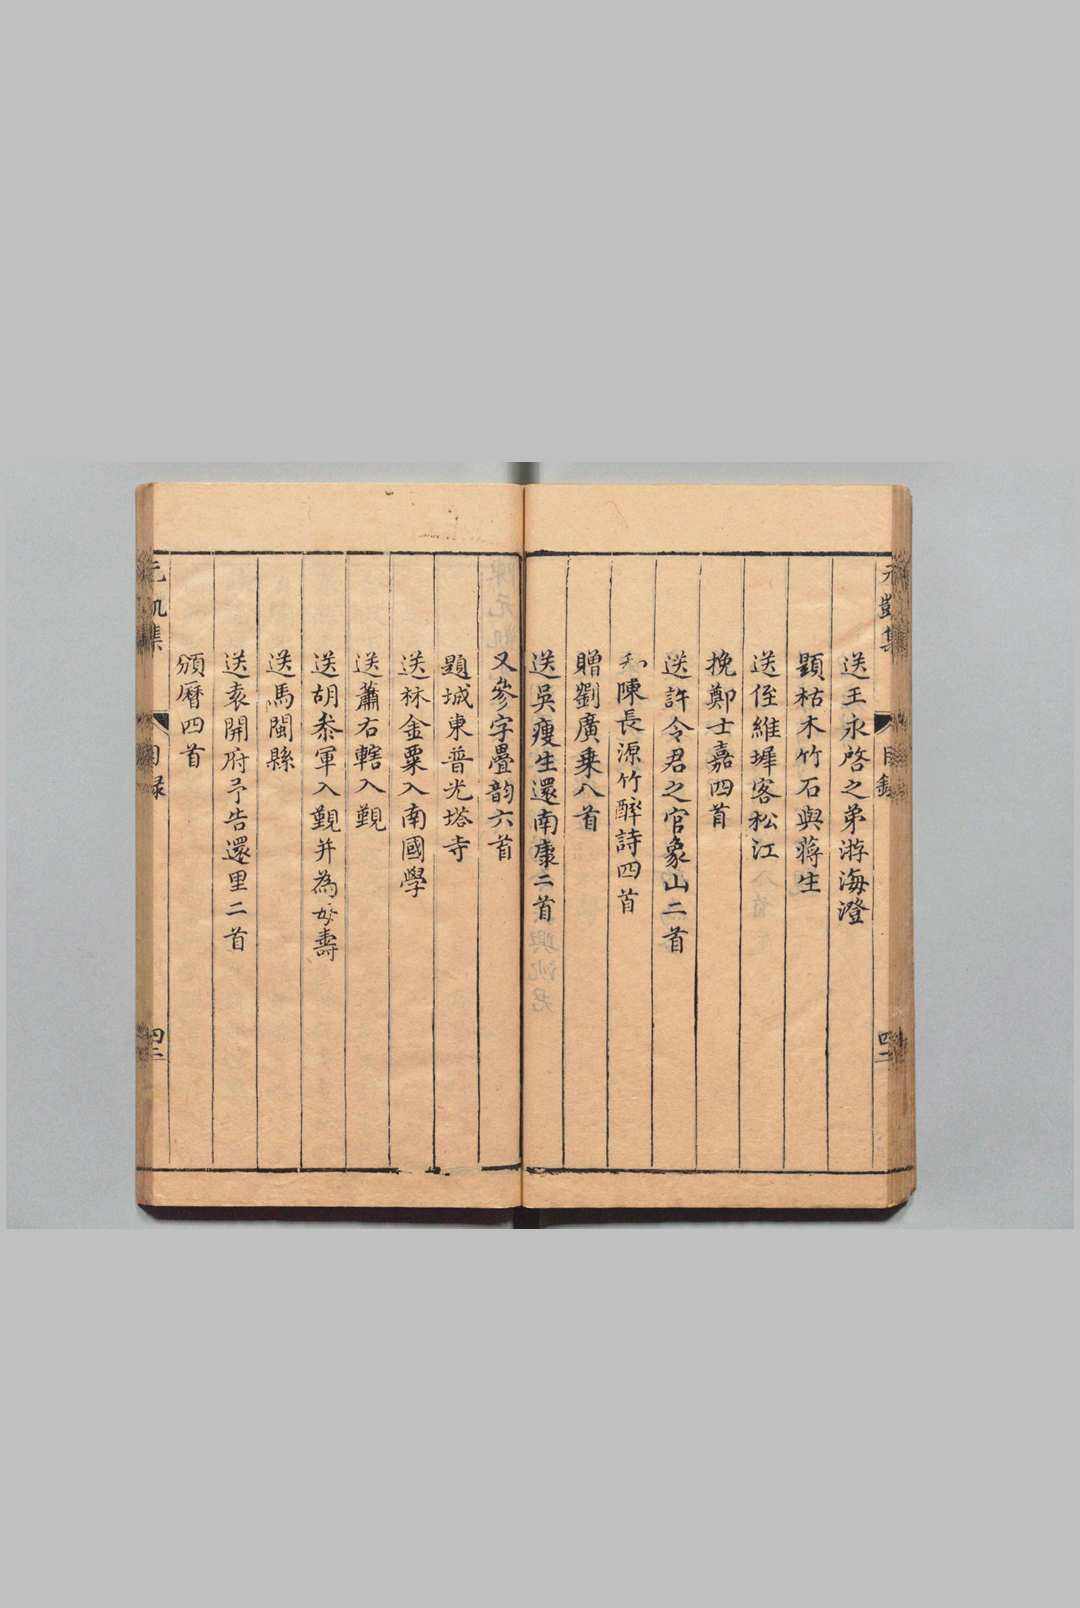 元凱集 目錄 四二
送王永啓之弟游海澄
題枯木竹石與蔣生
送侄維墀客松江
挽鄭士嘉四首
送許令君之官象山二首
和陳長源竹醉詩四首
贈劉廣乗八首
送吳瘦生還南康二首
又參字疊韵六首
題城東普光塔寺
送林金粟入南國學
送蕭右轄入覲
送胡叅軍入覲并為母壽
送馬閩縣
送袁開府予告還里二首
頒曆四首
元凱集 目録 四二